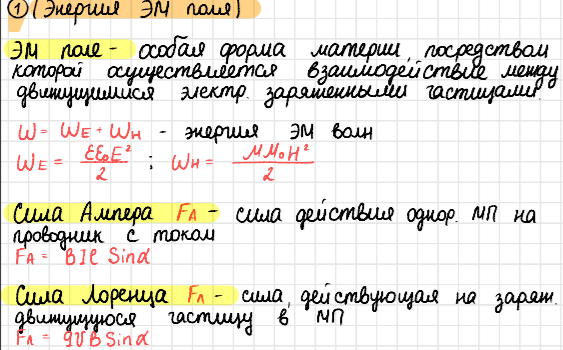 ① (Энергия ЭМ поля)
ЭМ поле - особая форма материи, посредством
которой осуществляется взаимодействие между
движущимися электр. заряженными частицами.
W = WE + WH - энергия ЭМ волн
WE = εε₀E²/2 ; WH = μμ₀H²/2
Сила Ампера FА - сила действия однор. МП на
проводник с током
FА = BIl Sinα
Сила Лоренца FЛ - сила, действующая на заряж.
движущуюся частицу в МП
FЛ = qVBSinα